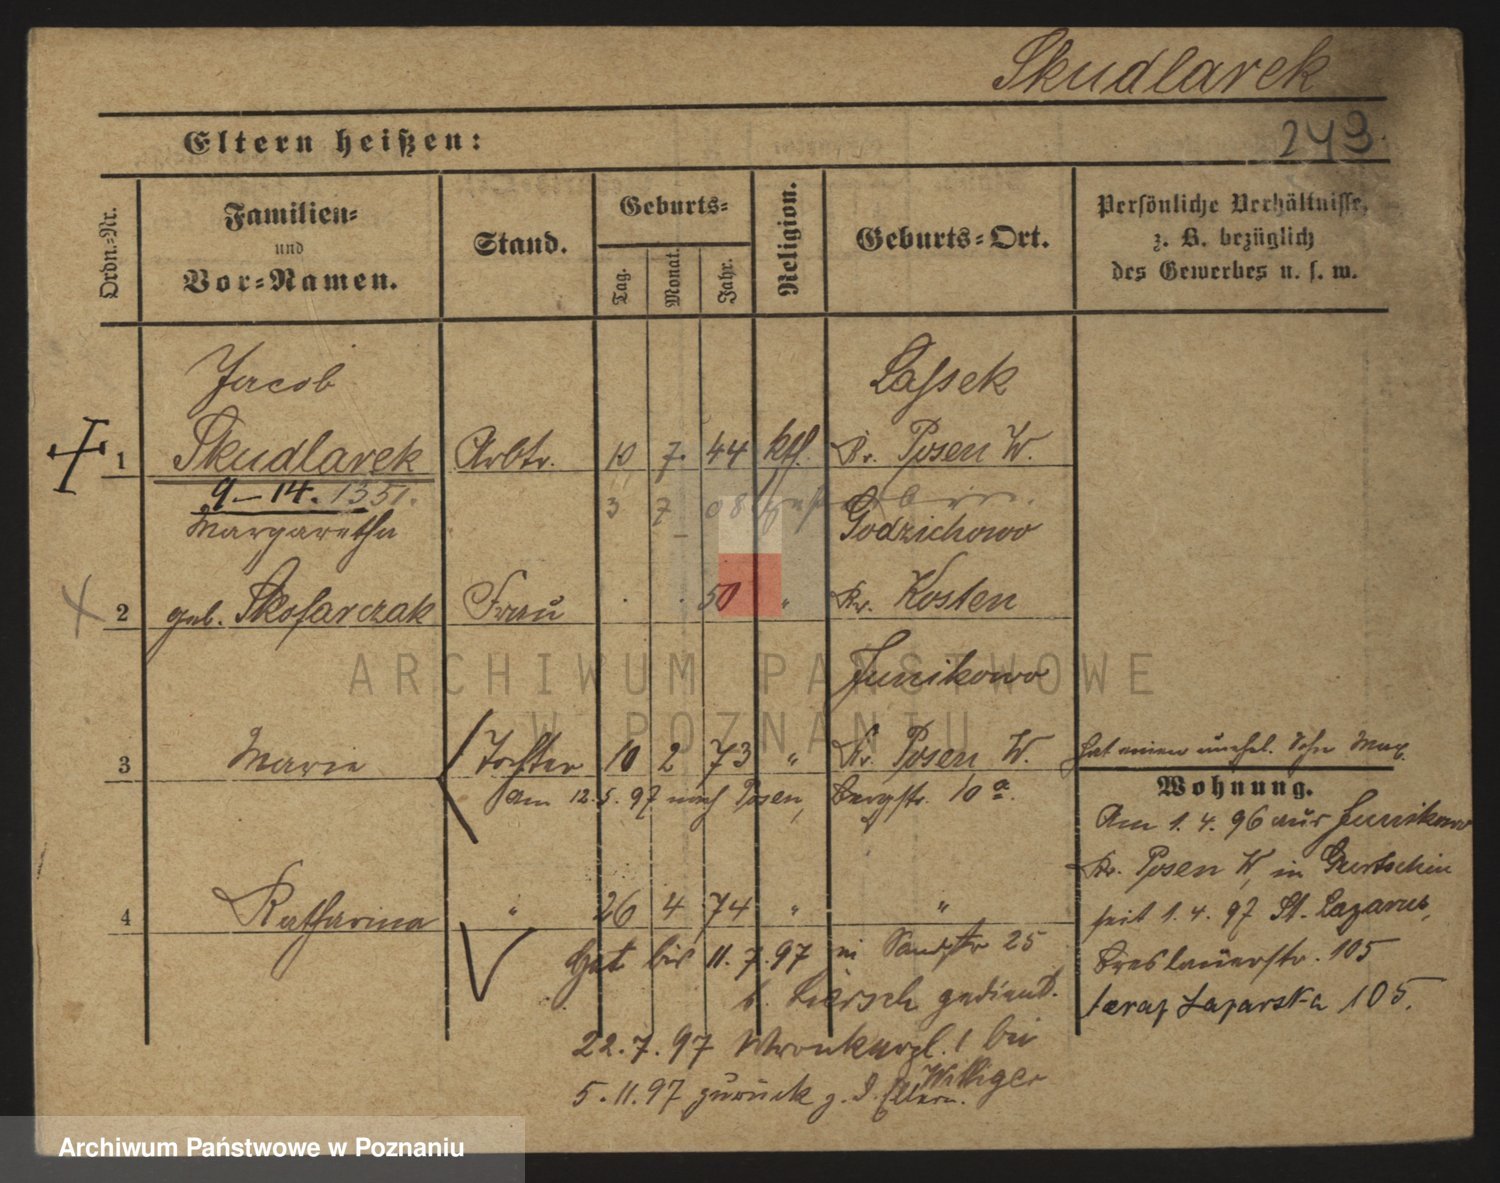 Skudlarek
243.
Eltern heißen:
Ordn.-Nr.
Familien-
und
Vor-Namen.
Stand.
Geburts-
Tag.
Monat.
Jahr.
Religion.
Geburts-Ort.
Persönliche Verhältnisse,
z. B. bezüglich
des Gewerbes u. s. w.
Jacob
Lassek
1 Skudlarek Arbtr. 10 7. 44 kth. Kr. Posen W.
9-14. 1351.
3 7 08
Margaretha
Godzichowo
2 geb. Skotarczak Frau 50 " Kr. Kosten
Junikowo
3 Marie Tochter 10 2 73 " Kr. Posen W.
hat einen unehel. Sohn Max.
Am 12.5.97 nach Posen, Bergstr. 10 a.
Wohnung.
Am 1.4.96 aus Junikowo
Kr. Posen W, in Gurtschin
4 Katharina " 26 4 74 " "
seit 1.4.97 St. Lazarus,
Breslauerstr. 105
teraz Lazarska 105.
Hat bis 11.7.97 in Sandstr 25
b. gedient.
22.7.97 bei
Williger
5.11.97 zurück z. d. Eltern.
ARCHIWUM PAŃSTWOWE
W POZNANIU
Archiwum Państwowe w Poznaniu